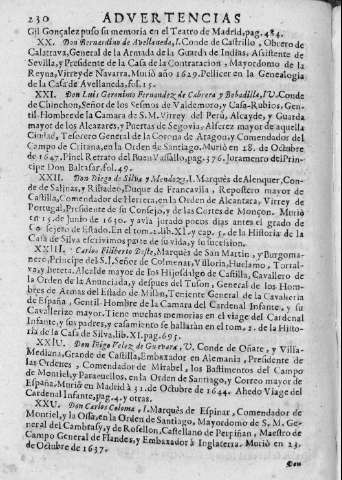 230 ADVERTENCIAS
Gil Gonçalez puso su memoria en el Teatro de Madrid, pag. 484.
XX. Don Bernardino de Avellaneda, I. Conde de Castrillo, Obrero de
Calatrava, General de la Armada de la Guarda de Indias, Assistente de
Sevilla, y Presidente de la Casa de la Contratacion, Mayordomo de la
Reyna, Virrey de Navarra. Murió año 1629. Pellicer en la Genealogia
de la Casa de Avellaneda, fol. 15.
XXI. Don Luis Geronimo Fernandez de Cabrera y Bobadilla, IV. Conde
de Chinchon, Señor de los Sesmos de Valdemoro, y Casa-Rubios, Gen-
til-Hombre de la Camara de S.M. Virrey del Perú, Alcayde, y Guarda
mayor de los Alcazares, y Puertas de Segovia, Alferez mayor de aquella
Ciudad, Tesorero General de la Corona de Aragon, y Comendador del
Campo de Critana, en la Orden de Santiago. Murió en 28. de Octubre
de 1647. Pinel Retrato del Buen Vassallo, pag. 376. Joramento del Prin-
cipe Don Baltasar, fol. 49.
XXII. Don Diego de Silva y Mendoza, I. Marqués de Alenquer, Con-
de de Salinas, y Ribadeo, Duque de Francavila, Repostero mayor de
Castilla, Comendador de Herrera, en la Orden de Alcantara, Virrey de
Portugal, Presidente de su Consejo, y de las Cortes de Monçon. Murió
en 15. de Junio de 1630. y avia jurado pocos dias antes el grado de
Consejero de Estado. En el tom. 2. lib. XI. y cap. 5. de la Historia de la
Casa de Silva escrivimos parte de su vida, y su sucesion.
XXIII. Carlos Filiberto Deste, Marqués de San Martin, y Burgoma-
nero, Principe del S.I. Señor de Colmenas, Villorin, Huelamo, Torral-
va, y Beteta, Alcalde mayor de los Hijosdalgo de Castilla, Cavallero de
la Orden de la Anunciada, y despues del Tuson, General de los Hom-
bres de Armas del Estado de Milán, Teniente General de la Cavalleria
de España, Gentil-Hombre de la Camara del Cardenal Infante, y su
Cavallerizo mayor. Tiene muchas memorias en el viage del Cardenal
Infante, y sus padres, y casamiento se hallarán en el tom. 2. de la Histo-
ria de la Casa de Silva, lib. XI. pag. 695.
XXIV. Don Iñigo Velez de Guevara, V. Conde de Oñate, y Villa-
Mediana, Grande de Castilla, Embaxador en Alemania, Presidente de
las Ordenes, Comendador de Mirabel, los Bastimentos del Campo
de Montiel, y Paracuellos, en la Orden de Santiago, y Correo mayor de
España. Murió en Madrid à 31. de Octubre de 1644. Ahedo Viage del
Cardenal Infante, pag. 4. y otras.
XXV. Don Carlos Coloma, I. Marqués de Espinar, Comendador de
Montiel, y la Ossa, en la Orden de Santiago, Mayordomo de S.M. Ge-
neral del Cambrasy, y de Rosellon, Castellano de Perpiñan, Maestro de
Campo General de Flandes, y Embaxador à Inglaterra. Murió en 23.
de Octubre de 1637.
Don